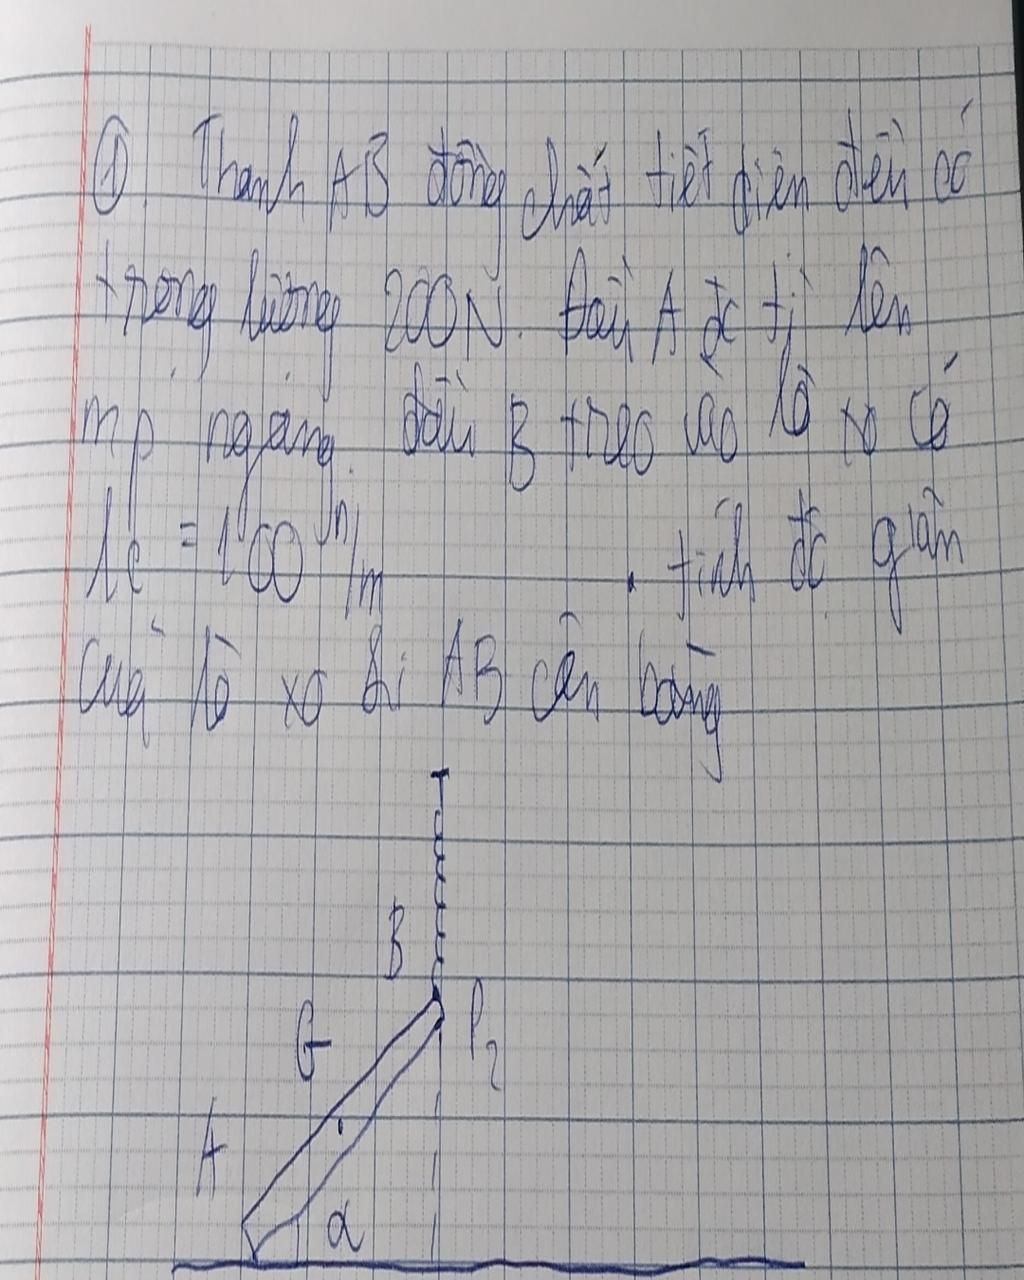 ① Thanh AB đồng chất tiết diện đều có
trọng lượng 200N. Đầu A đc tì lên
mp ngang. đầu B treo vào lò xo có
k = 100 n/m . tính độ giãn
của lò xo khi AB cân bằng
B
G
P2
A
α